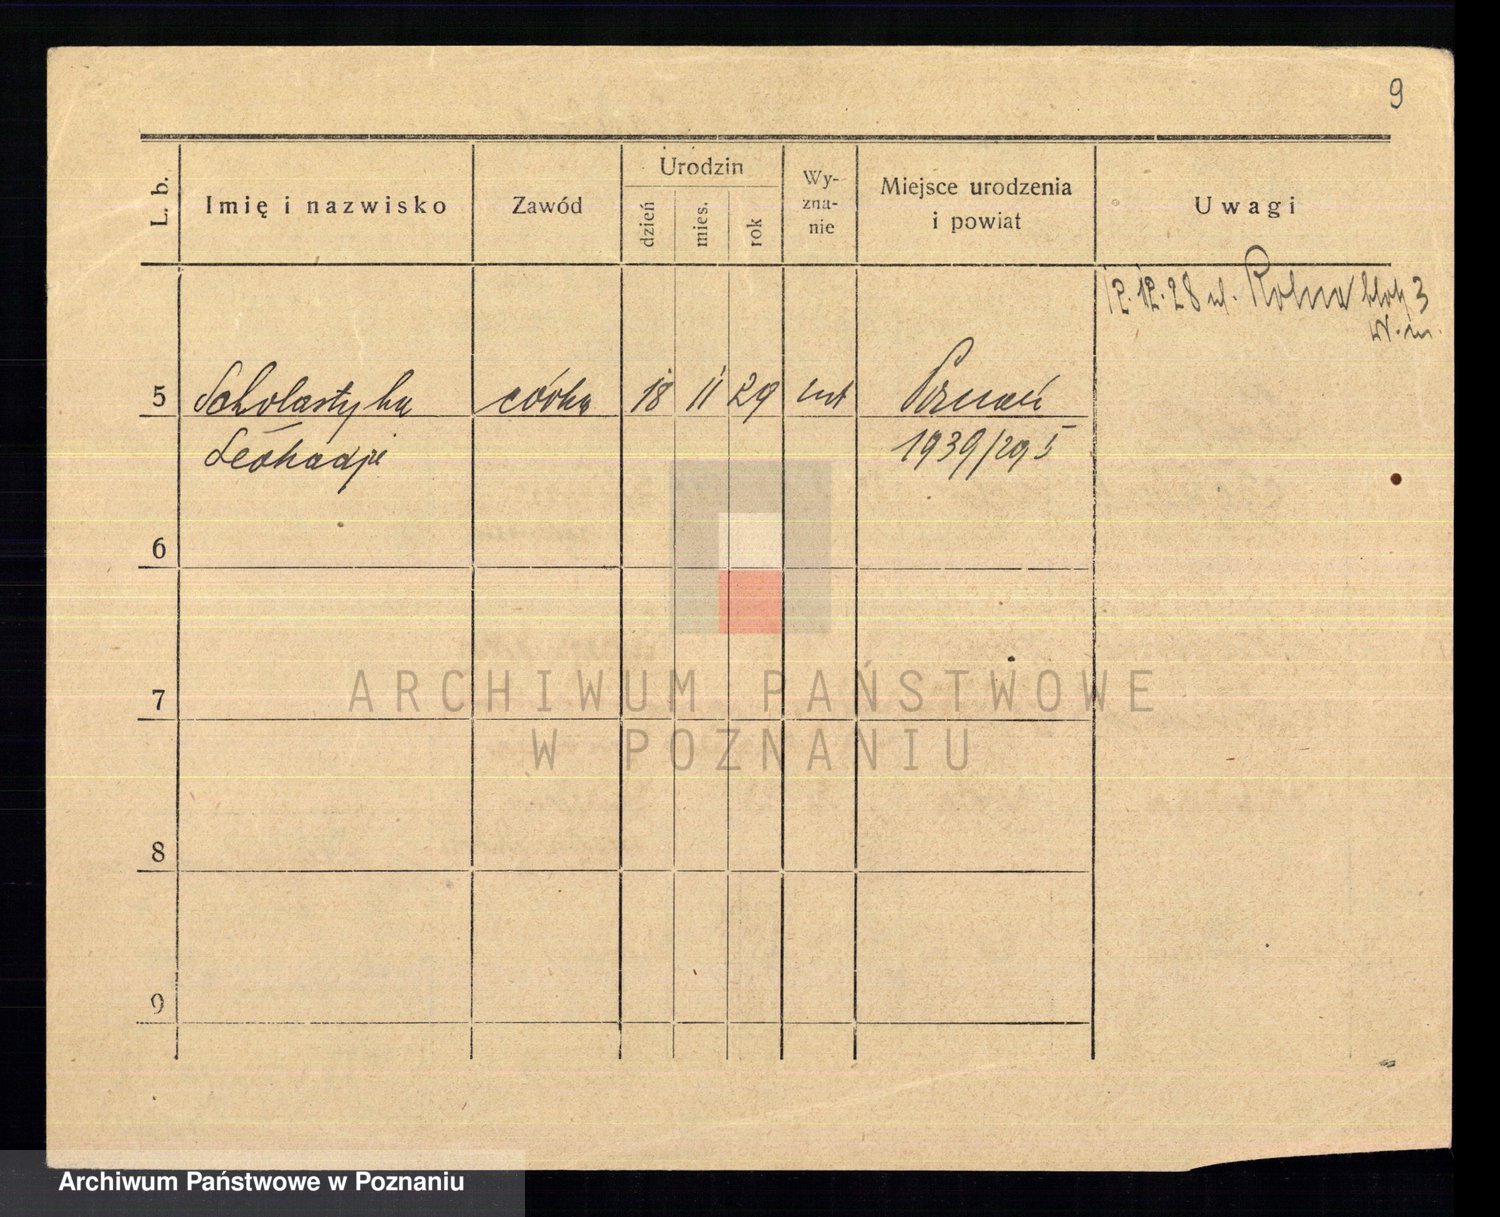 9
L. b.
Imię i nazwisko
Zawód
Urodzin
dzień
mies.
rok
Wy-
zna-
nie
Miejsce urodzenia
i powiat
Uwagi
12.12.28 ul. Rolna blok 3
5 Scholastyka córka 18 11 29 kat Poznań
Leokadja 1939/29 I
6
7
8
9
ARCHIWUM PAŃSTWOWE
W POZNANIU
Archiwum Państwowe w Poznaniu